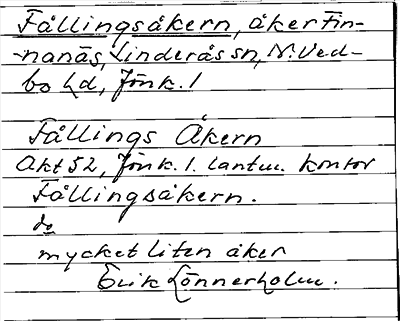 Fållingsåkern, åker Fin-
nanäs, Linderås sn, N. Ved-
bo hd, Jönk. l
Fållings Åkern
Akt 52, Jönk. l. lantm. kontor
Fållingsåkern.
do
mycket liten åker
Erik Lönnerholm.